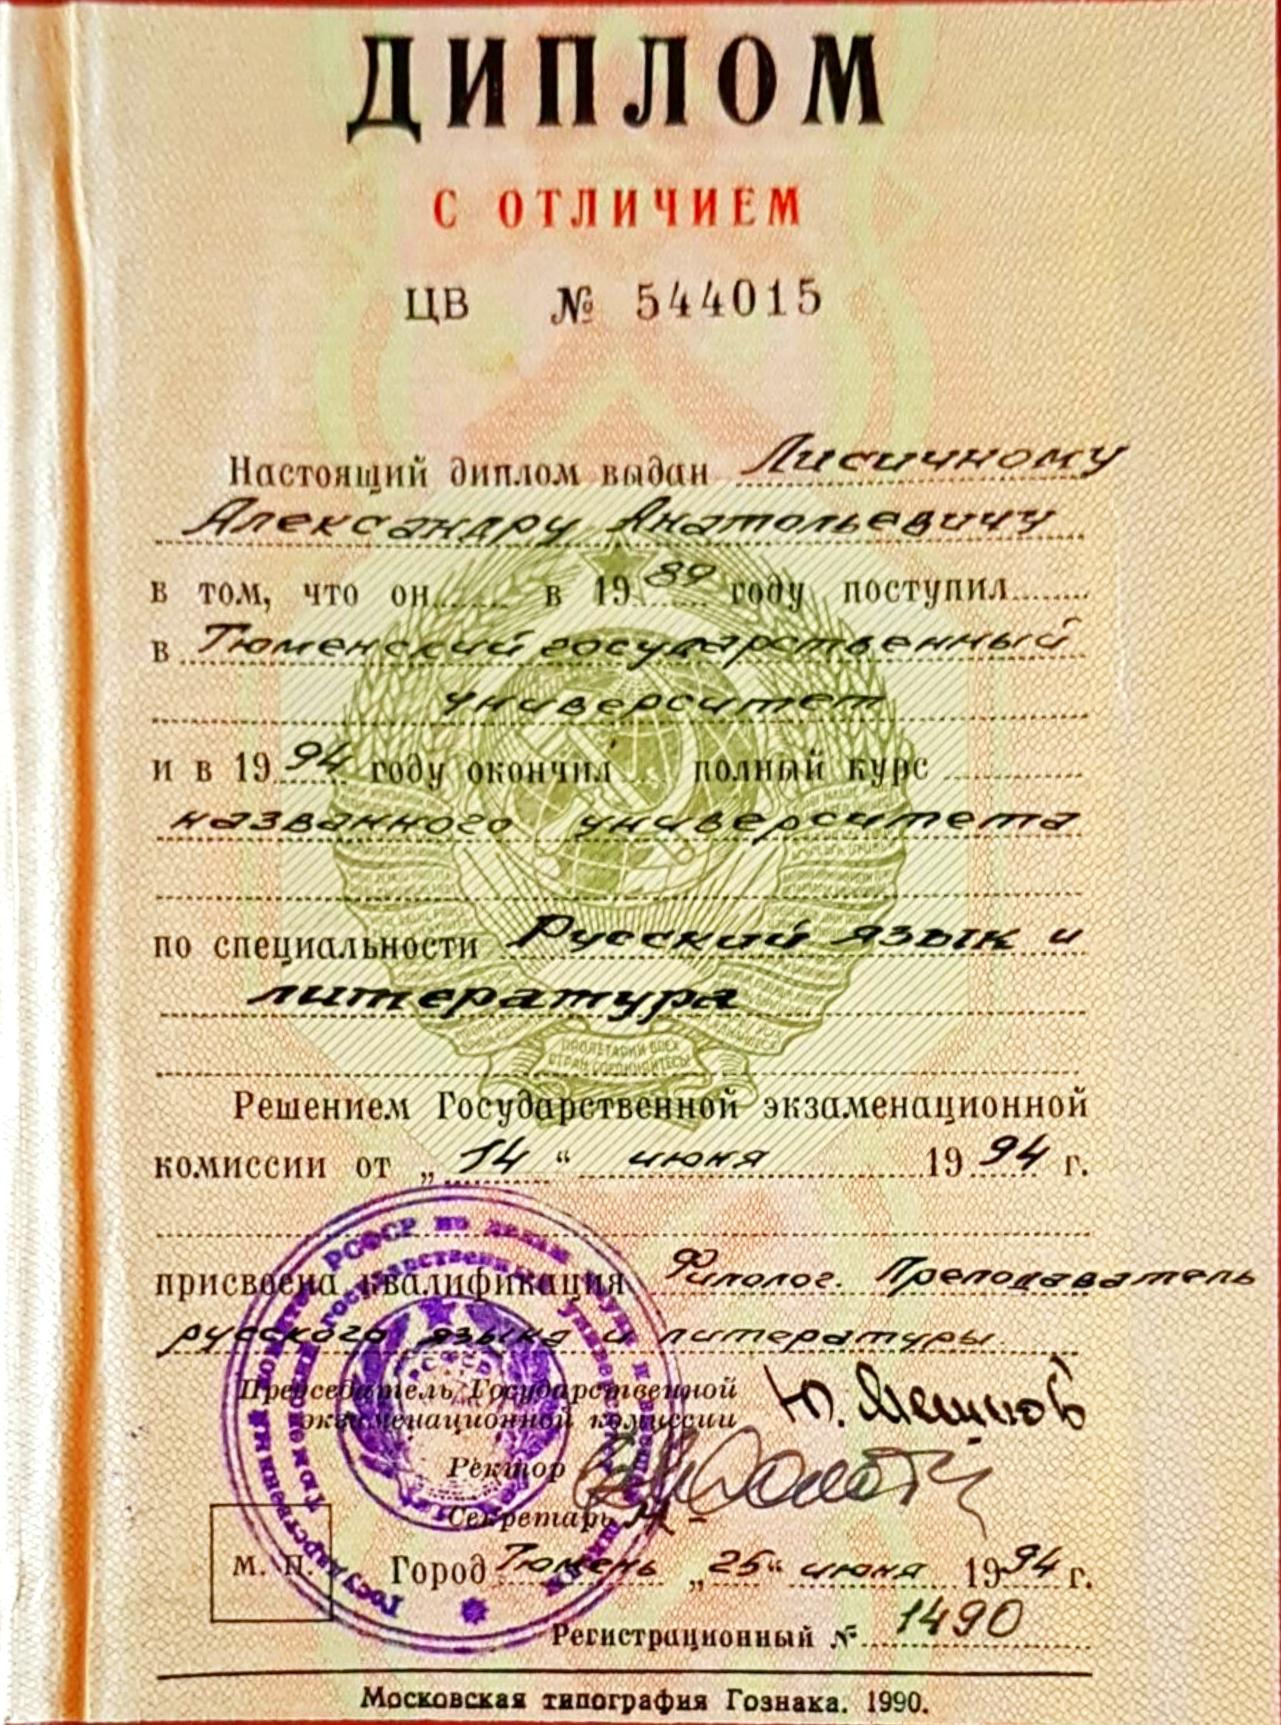 ДИПЛОМ
С ОТЛИЧИЕМ
ЦВ № 544015
Настоящий диплом выдан Лисичному
Александру Анатольевичу
в том, что он в 1989 году поступил
в Тюменский государственный
университет
и в 1994 году окончил полный курс
названного университета
по специальности Русский язык и
литература
ПРОЛЕТАРИИ ВСЕХ
СТРАН СОЕДИНЯЙТЕСЬ!
Решением Государственной экзаменационной
комиссии от „14“ июня 1994 г.
присвоена квалификация Филолог. Преподаватель
русского языка и литературы.
Председатель Государственной
экзаменационной комиссии
Ректор
Секретарь
М. П. Город Тюмень „25“ июня 1994 г.
Регистрационный № 1490
Государственный комитет РСФСР по делам науки и высшей школы
Тюменский государственный университет
РСФСР
Московская типография Гознака. 1990.